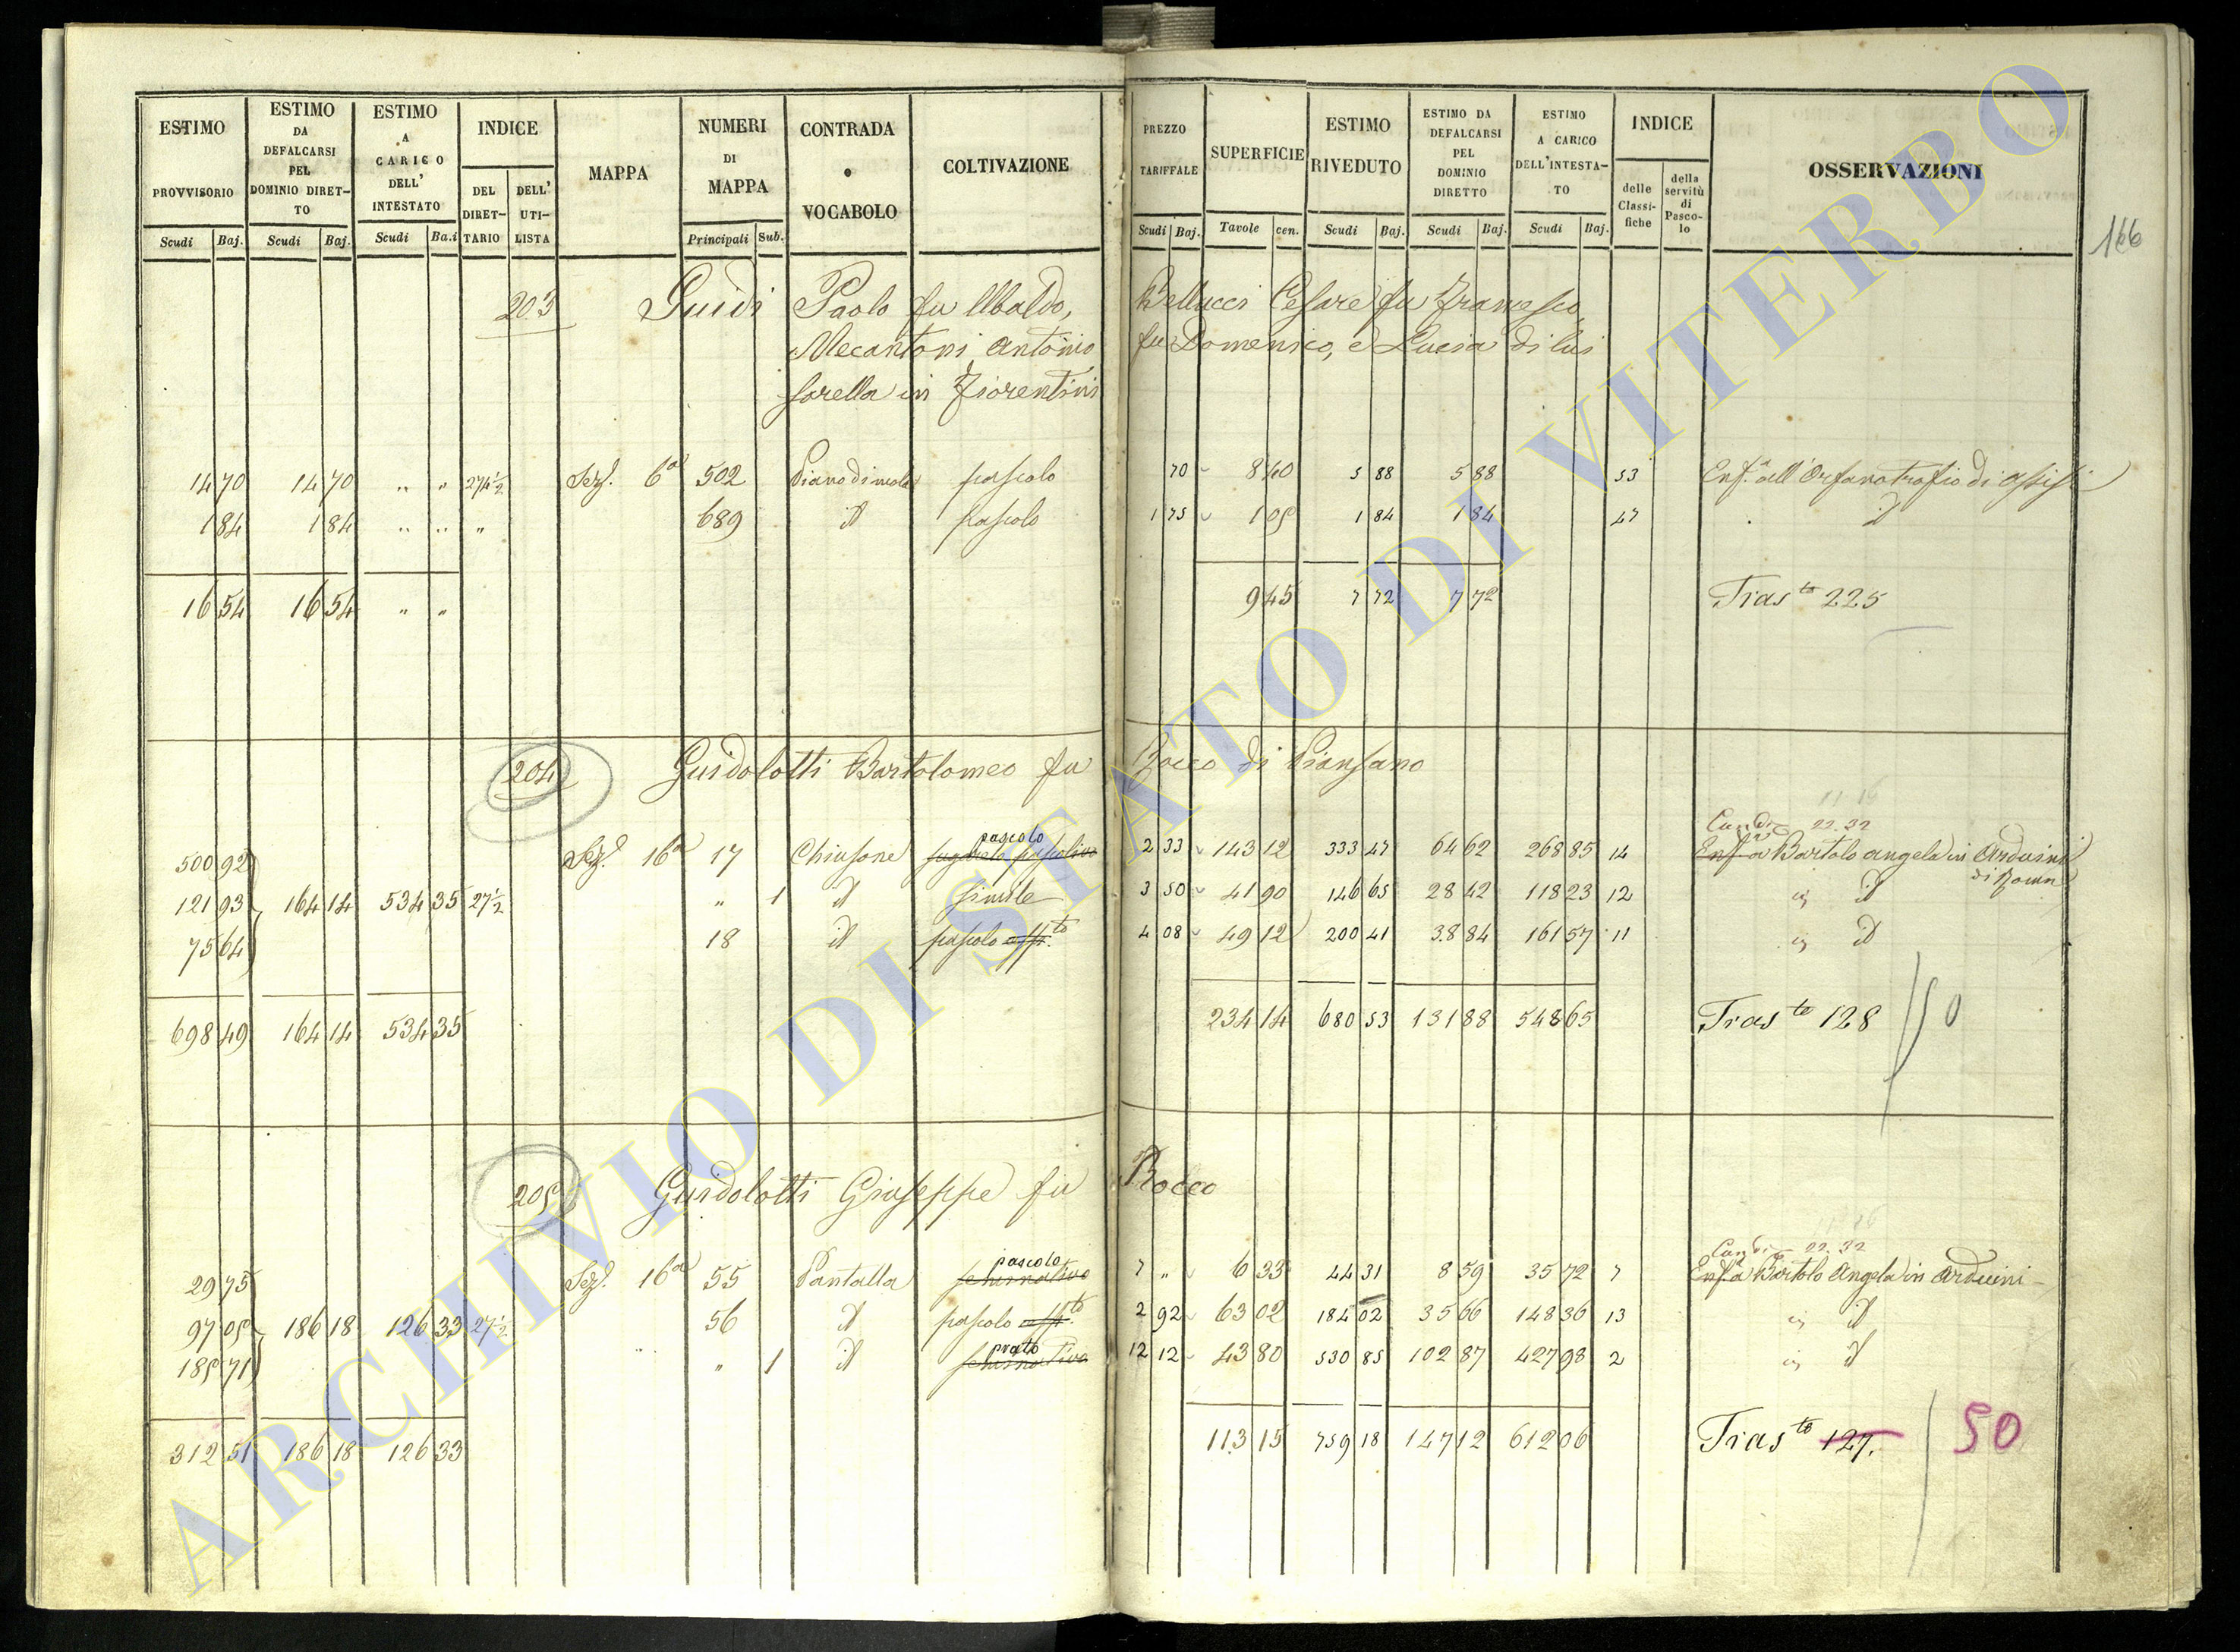 ESTIMO PROVVISORIO Scudi Baj.
ESTIMO DA DEFALCARSI PEL DOMINIO DIRET- TO Scudi Baj.
ESTIMO A CARICO DELL' INTESTATO Scudi Ba.i
INDICE DEL DIRET- TARIO DELL' UTI- LISTA
MAPPA
NUMERI DI MAPPA Principali Sub.
CONTRADA o VOCABOLO
COLTIVAZIONE
PREZZO TARIFFALE Scudi Baj.
SUPERFICIE Tavole cen.
ESTIMO RIVEDUTO Scudi Baj.
ESTIMO DA DEFALCARSI PEL DOMINIO DIRETTO Scudi Baj.
ESTIMO A CARICO DELL'INTESTA- TO Scudi Baj.
INDICE delle Classi- fiche della servitù di Pasco- lo
OSSERVAZIONI
166
203 Guidi Paolo fu Ubaldo, Bellucci Cesare fu Francesco,
Mecantoni Antonio fu Domenico, e Lucia di lui
sorella in Fiorentini
14 70 14 70 " " 274½ Sez. 6a 502 pascolo 70 8 40 5 88 5 88 53 Enf.a all'Orfanotrofio di Assisi
1 84 1 84 " " " 689 id pascolo 1 75 1 05 1 84 1 84 47 id
16 54 16 54 " " 9 45 7 72 7 72 Tras.to 225
204 Guidolotti Bartolomeo fu Rocco di Piansano
pascolo 22.32
500 92 Sez. 16a 17 Chiusone pascolivo 2 33 143 12 333 47 64 62 268 85 14 Enf.a a Bartolo Angela in Arduini
121 93 164 14 534 35 27½ " 1 id simile 3 50 41 90 146 65 28 42 118 23 12 id
75 64 18 id pascolo app.to 4 08 49 12 200 41 38 84 161 57 11 id
698 49 164 14 534 35 234 14 680 53 131 88 548 65 Tras.to 128 50
205 Guidolotti Giuseppe fu Rocco
pascolo 22.32
29 75 Sez. 16a 55 Pantalla seminativo 7 " 6 33 44 31 8 59 35 72 7 Enf.a a Bartolo Angela in Arduini
97 05 186 18 126 33 27½ 56 id pascolo app.to 2 92 63 02 184 02 35 66 148 36 13 id
prato
185 71 " 1 id seminativo 12 12 43 80 530 85 102 87 427 98 2 id
312 51 186 18 126 33 113 15 759 18 147 12 612 06 Tras.to 127. 50
ARCHIVIO DI STATO DI VITERBO